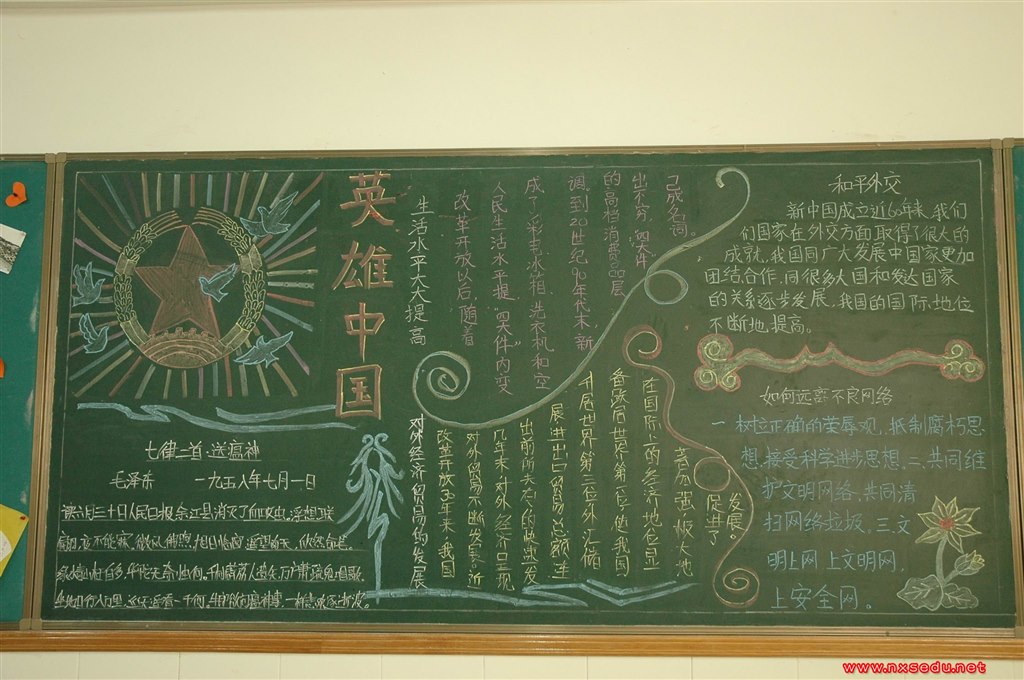 英雄中国
七律二首·送瘟神
毛泽东 一九五八年七月一日
读六月三十日人民日报,余江县消灭了血吸虫。浮想联
翩,夜不能寐。微风拂煦,旭日临窗,遥望南天,欣然命笔。
生活水平大大提高
改革开放以后,随着
人民生活水平提,“四大件”内变
成了彩电、冰箱、洗衣机和空
调,到20世纪90年代末,新
的高档消费品层
出不穷,“四大件”
已成名词。
对外经济贸易的发展
改革开放30年来,我国
对外贸易不断发展。近
几年来,对外经济呈现
出前所未有的快速发
展,进出口贸易总额连
升居世界第三位,外汇储
备跃居世界第一位,使我国
在国际上的经济地位显
著加强,极大地
促进了
发展。
和平外交
新中国成立近60年来,我们
们国家在外交方面取得了很大的
成就,我国同广大发展中国家更加
团结合作,同很多大国和发达国家
的关系逐步发展,我国的国际地位
不断地提高。
如何远离不良网络
一 树立正确的荣辱观,抵制腐朽思
想,接受科学进步思想,二、共同维
护文明网络,共同清
扫网络垃圾,三文
明上网 上文明网,
上安全网。
www.nxsedu.net